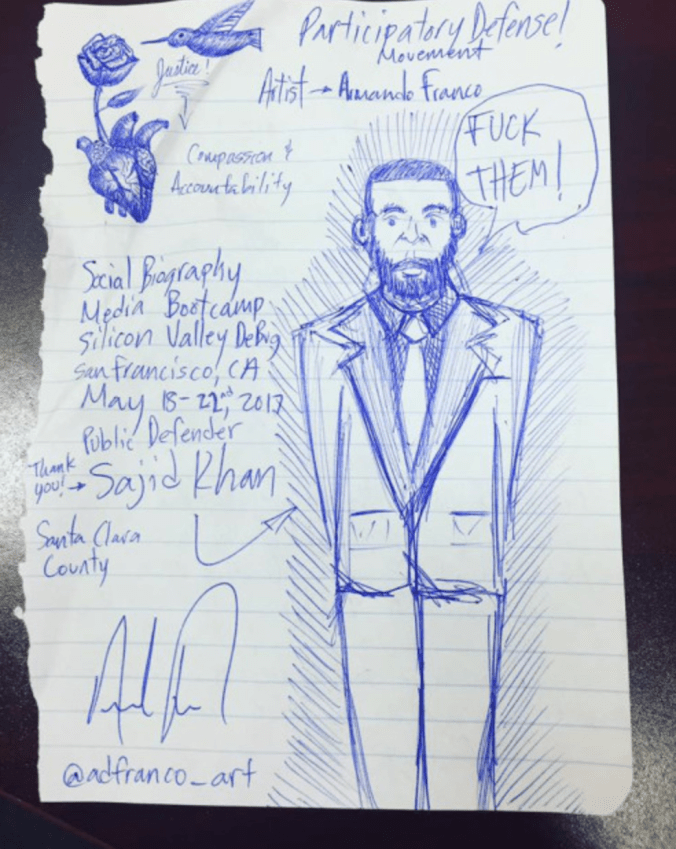 Participatory Defense!
Movement
Artist → Armando Franco
Justice!
Compassion &
Accountability
FUCK
THEM!
Social Biography
Media Bootcamp
Silicon Valley DeBug
San Francisco, CA
May 18-22nd, 2017
Public Defender
Thank
you! → Sajid Khan
Santa Clara
County
@adfranco_art